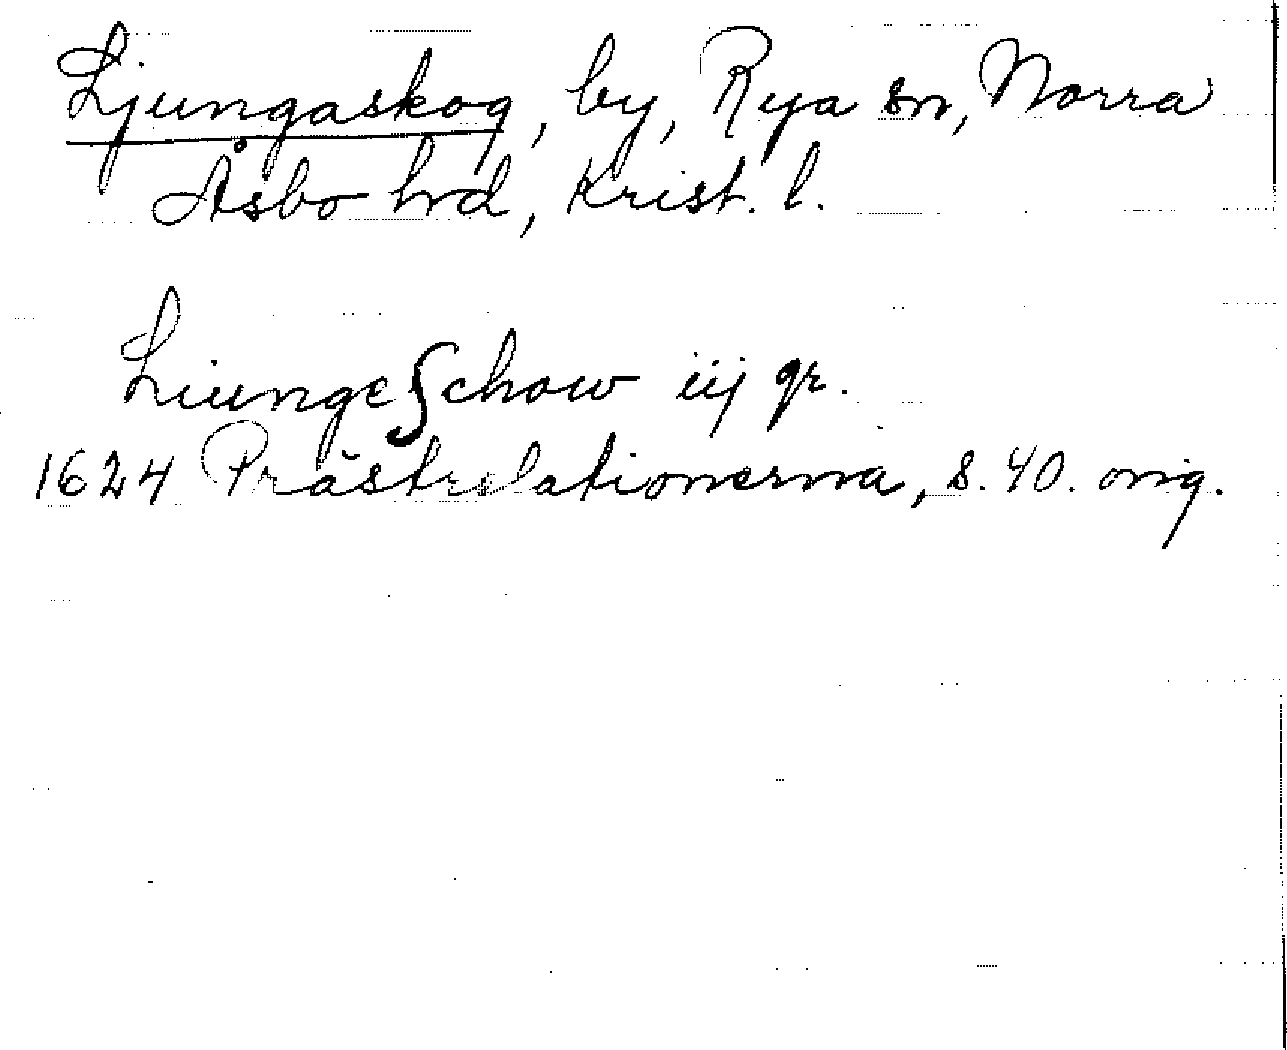 Ljungaskog, by, Rya sn, Norra
Åsbo hrd, Krist. l.
Liungeſchow iij gr.
1624 Prästrelationerna, s. 40. orig.